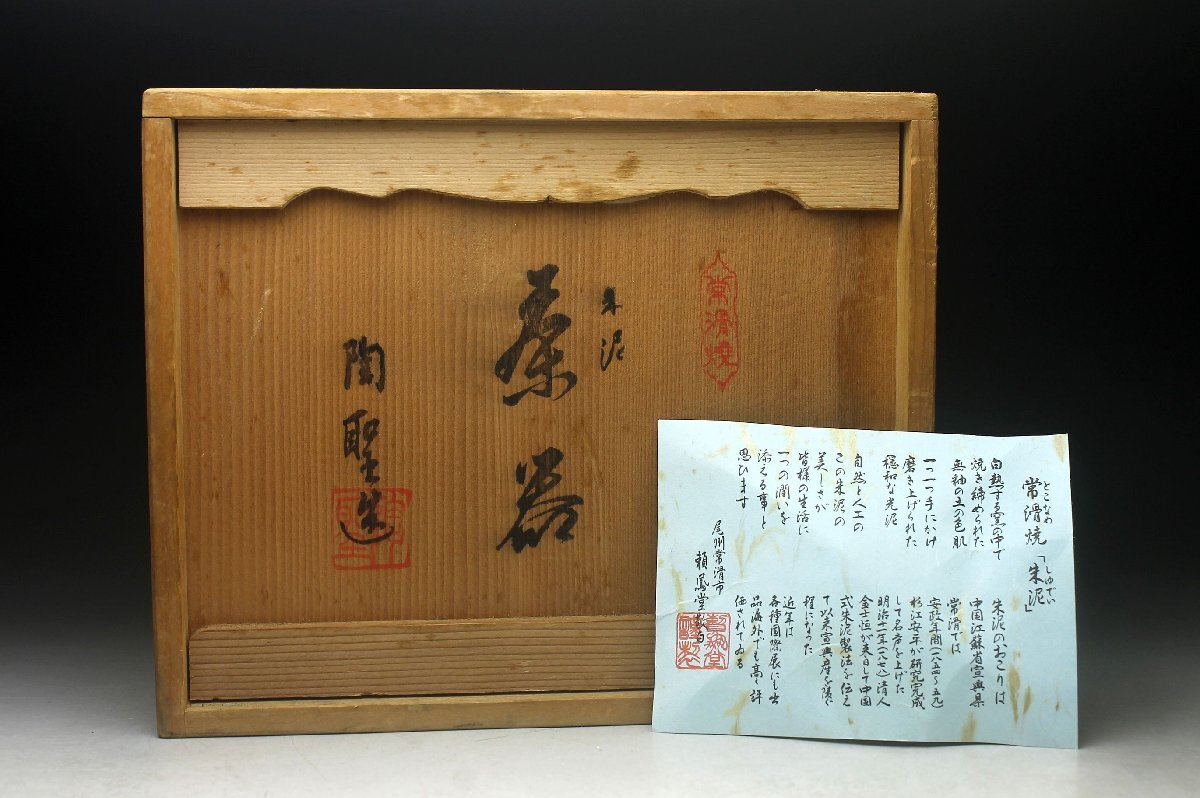 常滑焼
朱泥
茶器
陶聖造
常滑焼「朱泥」
とこなめ
しゅでい
白熱する窯の中で
焼き締められた
無釉の土の色肌
一つ一つ手にかけ
磨き上げられた
穏和な光泥
自然と人工の
この朱泥の
美しさが
皆様の生活に
一つの潤いを
添える事と
思ひます
朱泥のおこりは
中国江蘇省宜興県
常滑では
安政年間(一八五四〜五九)
杉江安平が研究完成
して名声を上げた
明治十一年(一八七八)清人
金士恒が来日して中国
式朱泥製法を伝え
て以来宜興産を凌ぐ
程になった
近年は
各種国際展にも出
品海外でも高く評
価されてゐる
尾州常滑市
頼鳳堂敬白